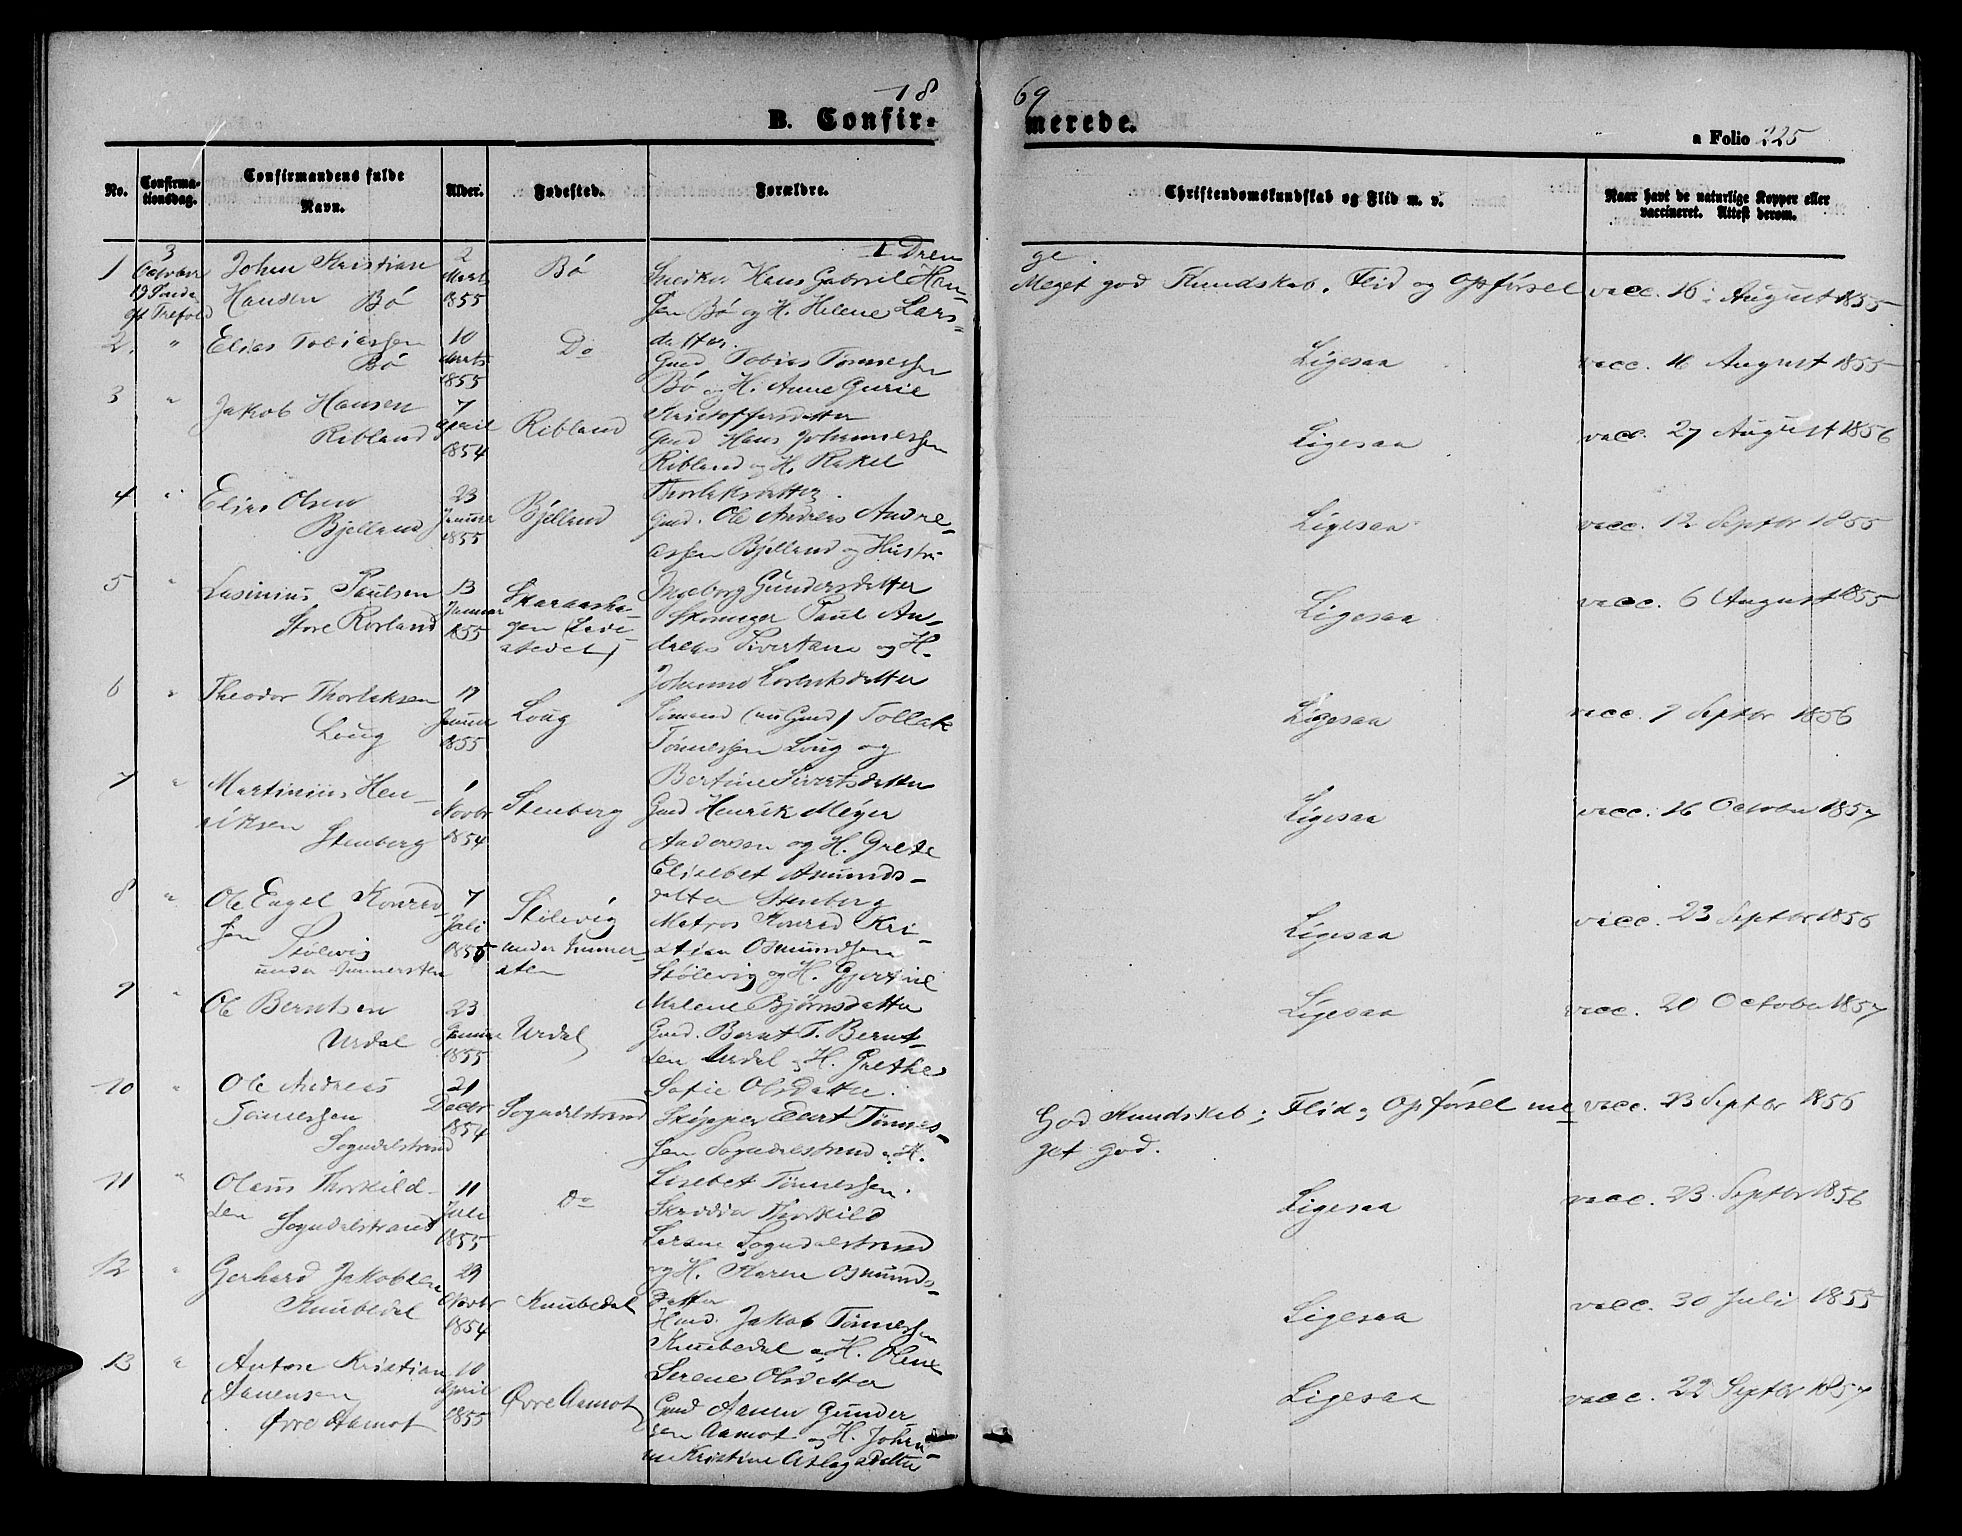 18 69
B. Confirmerede.
a Folio 225
No.
Confirmationsdag.
Confirmandens fulde Navn.
Alder.
Fødested.
Forældre.
Christendomskundskab og Flid m. v.
Naar havt de naturlige Kopper eller vaccineret. Attest derom.
1 Drenge.
1
3 October 19 Sønda. eft Trefold
John Kristian Hansen Bø
2 Marts 1855
Bø
Snedker Hans Gabriel Hansen Bø og H. Helene Larsdatter.
Meget god Kundskab, Flid og Opførsel
vacc. 16 August 1855
2. "
Elias Tobiassen Bø
10 Marts 1855
Do
Gmd Tobias Tønnessen Bø og H. Anne Gurie Kristoffersdatter
Ligesaa
vacc. 16 August 1855
3 "
Jakob Hansen Ribland
7 April 1854
Ribland
Gmd Hans Johannessen Ribland og H. Rakel Thorlaksdatter.
Ligesaa
vacc. 27 August 1856
4 "
Elias Olsen Bjelland
23 Januar 1855
Bjelland
Gmd. Ole Andreas Andreassen Bjelland og Hustru Ingeborg Gundersdatter
Ligesaa
vacc. 12 Septbr 1855
5 "
Lusinius Paulsen Store Rørland
13 Januar 1855
Skomager Paul Andreas Sivertsen og H. Johanne Lorentsdatter
Ligesaa
vacc. 6 August 1855
6 "
Theodor Thorlaksen Loug
17 Januar 1855
Loug
Sømand (nu Gmd) Tollak Tønnessen Loug og Bertine Sivertsdatter
Ligesaa
vacc. 9 Septbr 1856
7 "
Martinius Henriksen Stenberg
1 Novbr 1854
Stenberg
Gmd Henrik Meyer Andersen og H. Grete Elisabet Asmundsdatter Stenberg
Ligesaa
vacc. 16 October 1857
8 "
Ole Engel Konradsen Stølevig
7 Juli 1855
Stølevig
Matros Konrad Kristian Osmundsen Stølevig og H. Gjertine Malene Bjørnsdatter
Ligesaa
vacc. 23 Septbr 1856
9 "
Ole Berntsen Urdal
23 Januar 1855
Urdal
Gmd. Bernt T. Berntsen Urdal og H. Grethe Sofie Olsdatter.
Ligesaa
vacc. 20 October 1857
10 "
Ole Andreas Tønnessen Sogndalstrand
21 Decbr 1854
Sogndalstrand
Skipper Evert Tønnessen Sogndalstrand og H. Lisebet Tønnessen.
God Kundskab; Flid og Opførsel meget god.
vacc. 23 Septbr 1856
11 "
Olaus Thorkildsen Sogndalstrand
11 Juli 1855
Do
Skrædder Thorkild Larsen Sogndalstrand og H. Karen Osmundsdatter
Ligesaa
vacc. 23 Septbr 1856
12 "
Gerhard Jakobsen Knubedal
29 Novbr 1854
Knubedal
Hmd. Jakob Tønnessen Knubedal og H. Olene Serene Olsdatter
Ligesaa
vacc. 30 Juli 1855
13 "
Anton Kristian Aanensen Øvre Aamot
10 April 1855
Øvre Aamot
Gmd Aanen Gundersen Aamot og H. Johanne Kristine Aslagsdatter
Ligesaa
vacc. 22 Septbr 1857